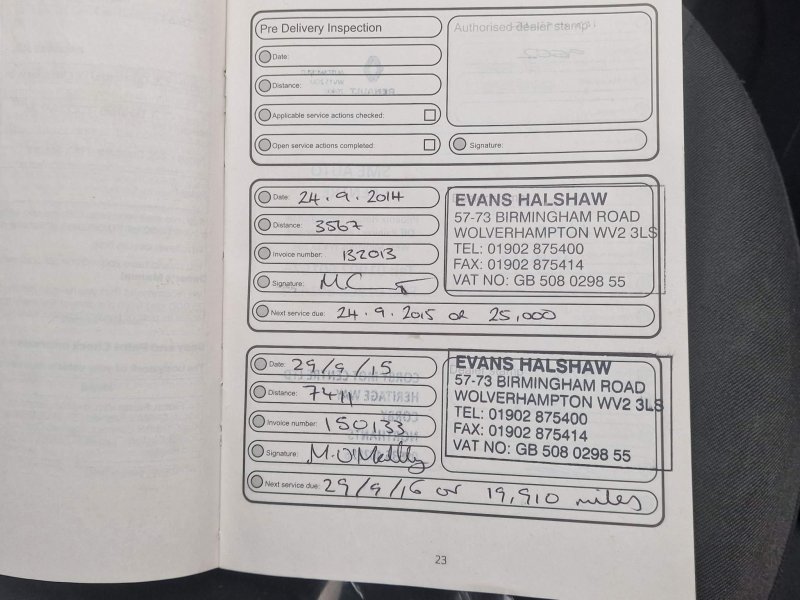 Pre Delivery Inspection
Authorised dealer stamp
Date:
Distance:
Applicable service actions checked:
Open service actions completed
Signature:
Date: 24.9.2014
Distance: 3567
Invoice number: 132013
Signature:
Next service due: 24.9.2015 or 25,000
EVANS HALSHAW
57-73 BIRMINGHAM ROAD
WOLVERHAMPTON WV2 3LS
TEL: 01902 875400
FAX: 01902 875414
VAT NO: GB 508 0298 55
Date: 29/9/15
Distance: 7411
Invoice number: 150133
Signature:
Next service due: 29/9/16 or 19,910 miles
EVANS HALSHAW
57-73 BIRMINGHAM ROAD
WOLVERHAMPTON WV2 3LS
TEL: 01902 875400
FAX: 01902 875414
VAT NO: GB 508 0298 55
23